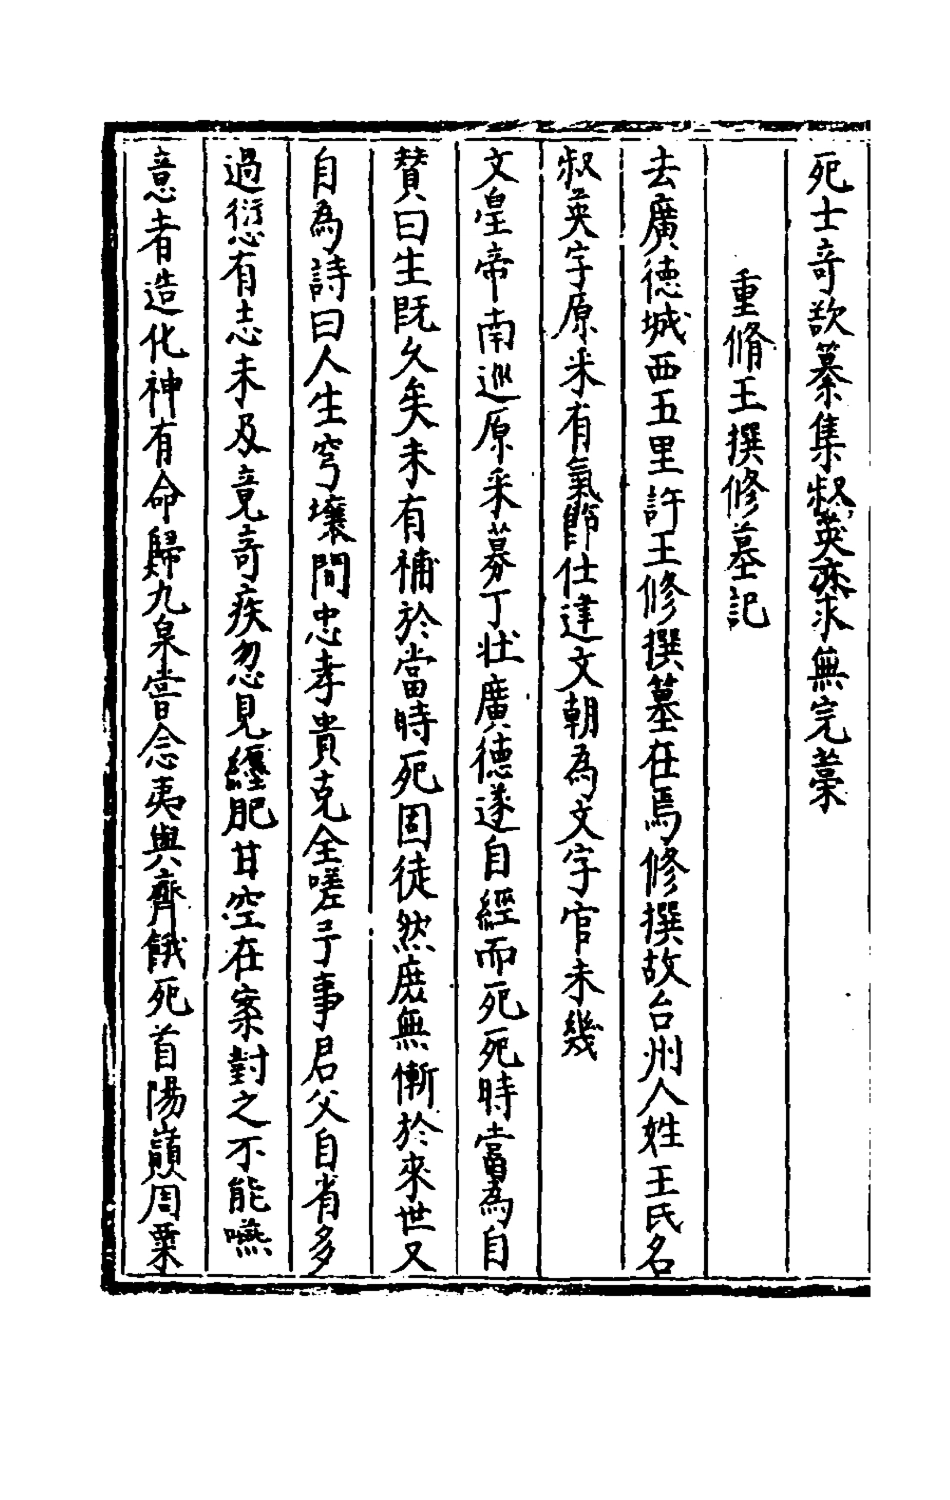 死士奇欲纂集叔英亦求無完藁
重脩王撰修墓記
去廣德城西五里許王修撰墓在焉修撰故台州人姓王氏名
叔英字原采有氣節仕建文朝為文字官未幾
文皇帝南巡原采募丁壯廣德遂自經而死死時嘗為自
賛曰生既久矣未有補於當時死固徒然庶無慚於來世又
自為詩曰人生穹壤間忠孝貴克全嗟予事君父自省多
過愆有志未及竟奇疾忽見纏肥甘空在案對之不能嚥
意者造化神有命歸九泉嘗念夷與齊餓死首陽巔周粟